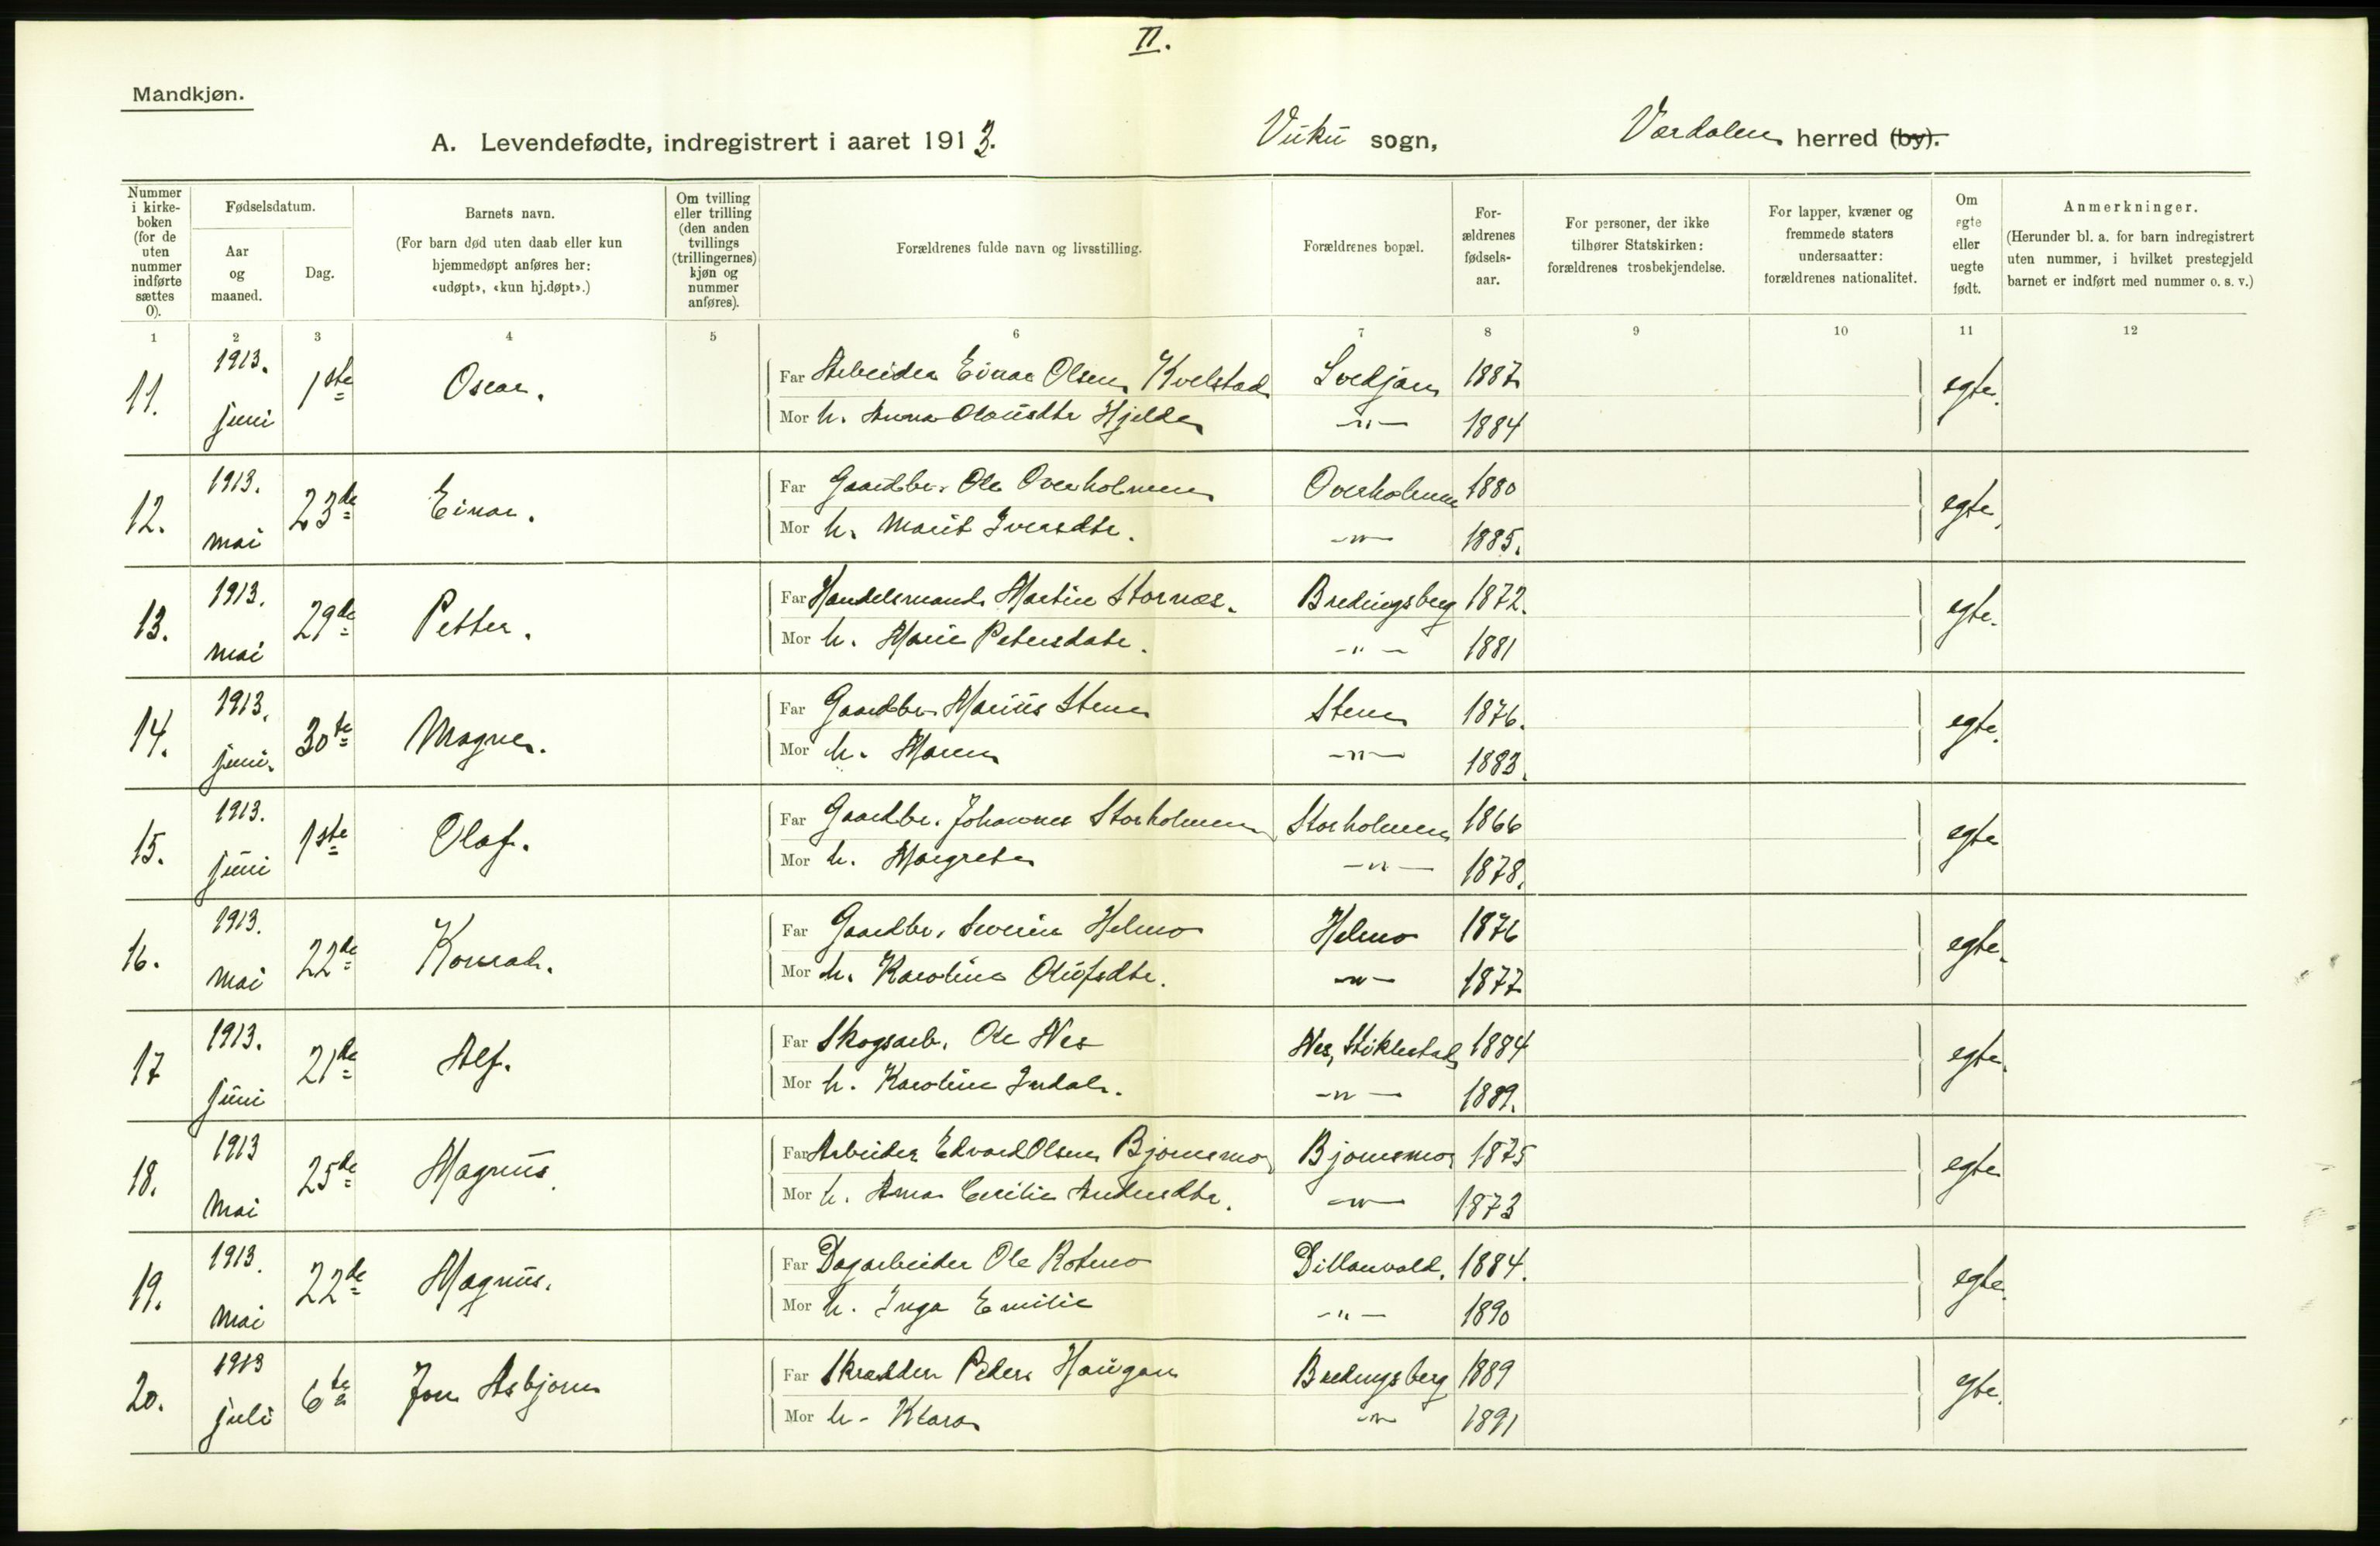 II.
Mandkjøn.
A. Levendefødte, indregistrert i aaret 1913. Vuku sogn, Værdalen herred (by).
Nummer i kirkeboken (for de uten nummer indførte sættes 0).
Fødselsdatum.
Aar og maaned.
Dag.
Barnets navn.
(For barn død uten daab eller kun hjemmedøpt anføres her: «udøpt», «kun hj.døpt».)
Om tvilling eller trilling (den anden tvillings (trillingernes) kjøn og nummer anføres).
Forældrenes fulde navn og livsstilling.
Forældrenes bopæl.
Forældrenes fødselsaar.
For personer, der ikke tilhører Statskirken: forældrenes trosbekjendelse.
For lapper, kvæner og fremmede staters undersaatter: forældrenes nationalitet.
Om egte eller uegte født.
Anmerkninger.
(Herunder bl. a. for barn indregistrert uten nummer, i hvilket prestegjeld barnet er indført med nummer o. s. v.)
1 2 3 4 5 6 7 8 9 10 11 12
11. 1913. juni 1ste Oscar. Far Arbeider Einar Olsen Kvelstad Svedjan 1887 egte.
Mor h. Anna Olausdtr Hjelde -"- 1884
12. 1913. mai 23de Einar. Far Gaardbr. Ole Overholmen Overholmen 1880 egte.
Mor h. Marit Iversdtr. -"- 1885.
13. 1913. mai 29de Petter. Far Handelsmand Martin Stornæs. Bredingsberg 1872. egte.
Mor h. Marie Petersdatr. -"- 1881
14. 1913. juni. 30te Magne. Far Gaardbr. Marius Stene Stene 1876. egte.
Mor h. Maren -"- 1883.
15. 1913. juni 1ste Olaf. Far Gaardbr. Johannes Storholmen Storholmen 1866 egte
Mor h. Margrete -"- 1878.
16. 1913. mai 22de Konrad. Far Gaardbr. Severin Helmo Helmo 1876 egte.
Mor h. Karoline Olufsdtr. -"- 1877
17 1913. juni 21de Alf. Far Skogsarb. Ole Nes Nes, Stiklestad 1884 egte.
Mor h. Karoline Indal. -"- 1889.
18. 1913 mai 25de Magnus. Far Arbeider Edvard Olsen Bjørnsmo Bjørnsmo 1875 egte
Mor h. Anna Cecilie Andersdtr. -"- 1873
19. 1913. mai 22de Magnus. Far Dagarbeider Ole Rotmo 1884. egte.
Mor h. Inga Emilie -"- 1890
20. 1913 juli 6te Jon Asbjørn Far Skrædder Peder Haugan Bredingsberg 1889 egte.
Mor h. Klara -"- 1891